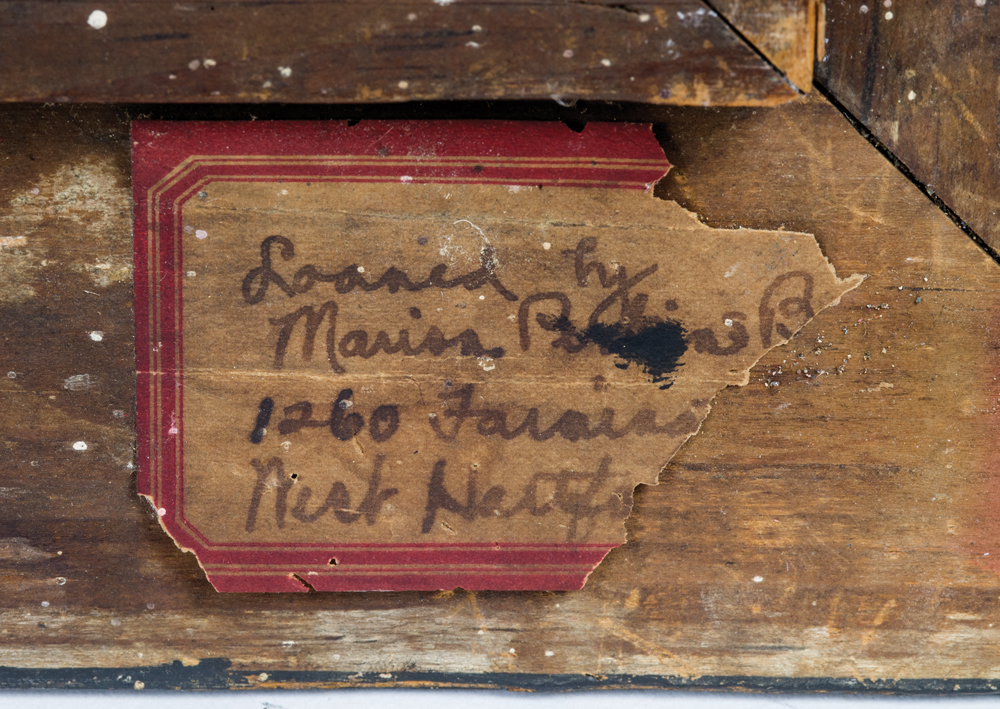 Loaned by
Marion B
1260 Farming
West Hartf